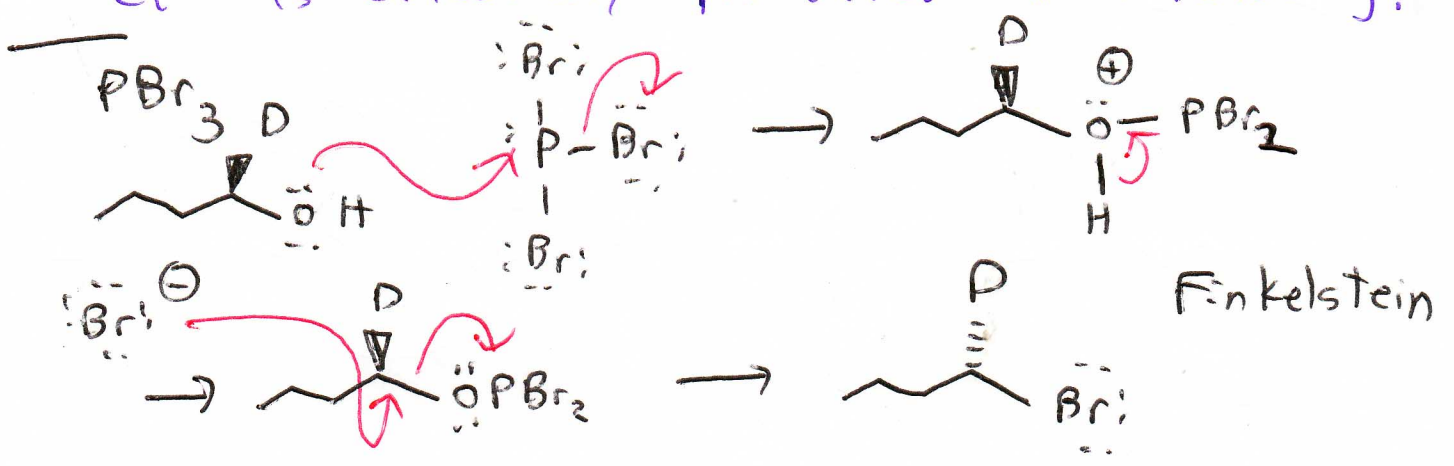 PBr3
D
ÖH
:Br:
:P-Br:
:Br:
→
D
⊕
Ö-PBr2
H
:Br: ⊖
→
D
ÖPBr2
→
D
Br:
Finkelstein